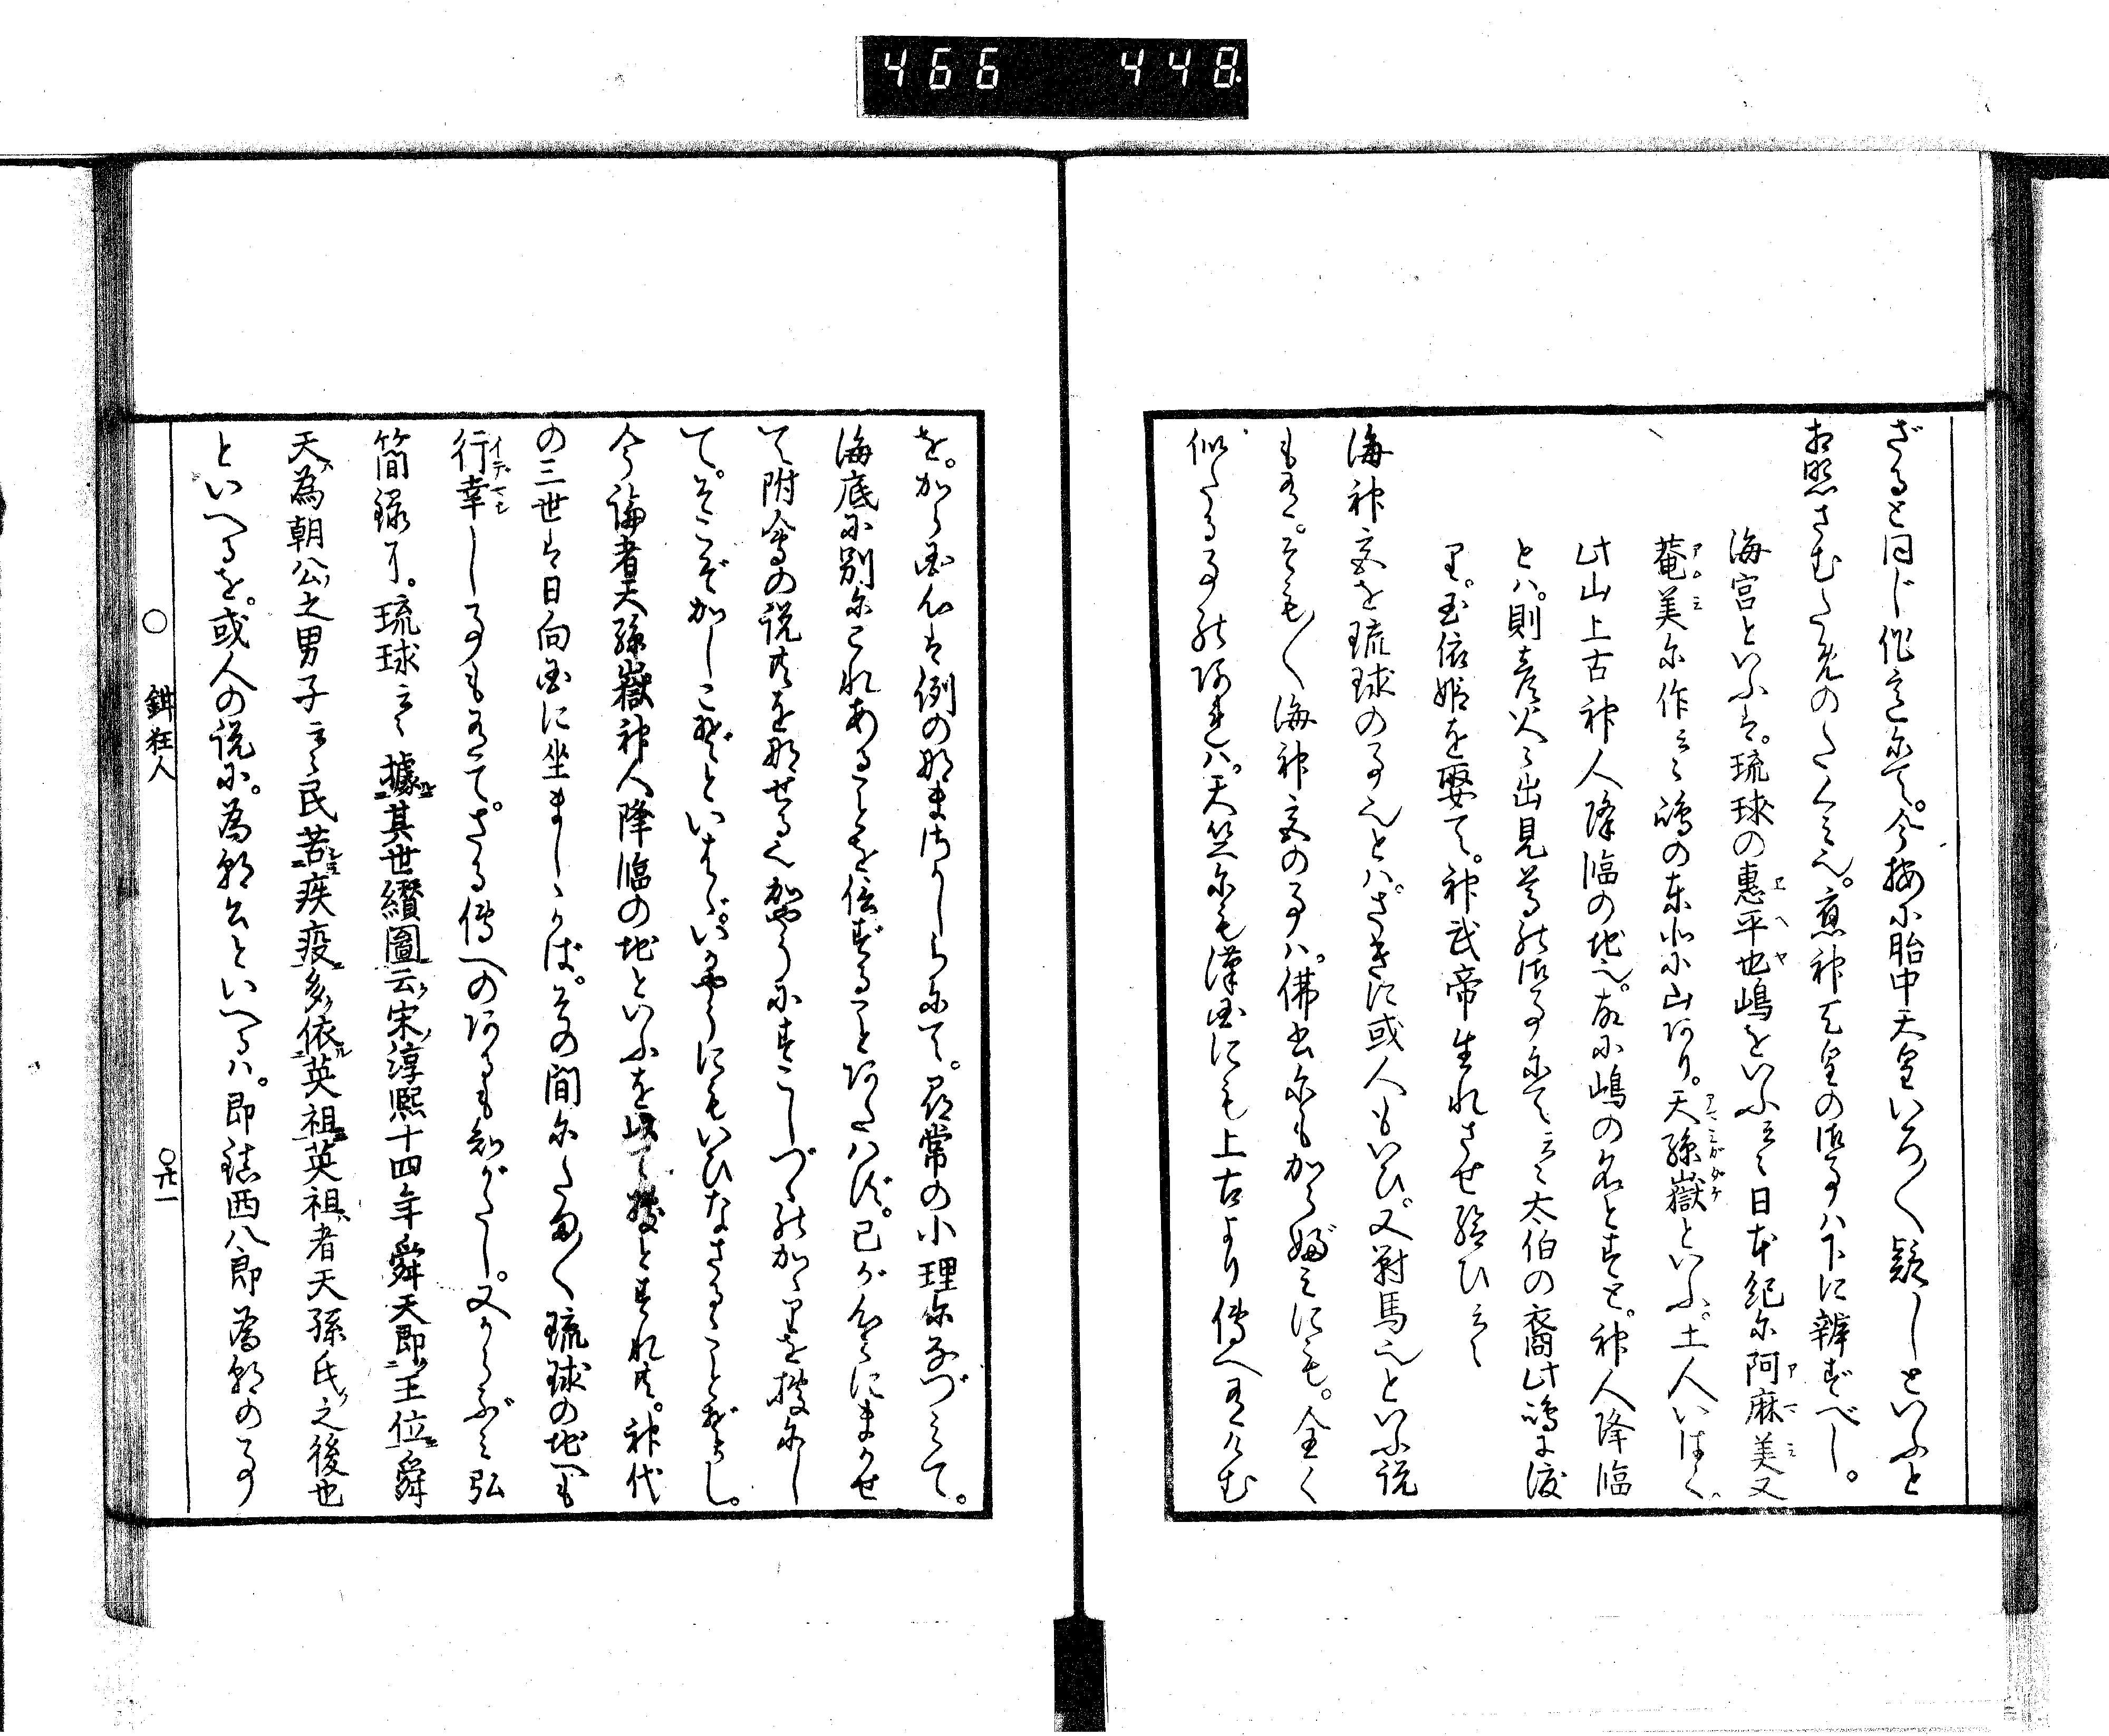 466 448
ざると同じ作言にて。今按に胎中天皇いろ〳〵疑しといふと
相照さむためのたくみ也。應神天皇の御事ハ下に辨ずべし。
海宮といふは。琉球の惠平也嶋をいふ云々日本紀に阿麻美又
菴美に作云々嶋の東北に山あり。天孫嶽といふ。土人いはく。
此山上古神人降臨の地也。故に嶋の名とすと。神人降臨
とハ。則彦火々出見尊の御事にて云々太伯の裔此嶋に渡
り。玉依姫を娶て。神武帝生れさせ給ひ云々
海神宮を琉球の事也とハ。さきに或人もいひ。又對馬也といふ説
もあり。そも〳〵海神宮の事ハ。佛書にもから婦みにも。全く
似たる事のあれハ。天竺にも漢国にも上古より傳へ有けむ
を。から国人は例のなまさかしらにて。尋常の小理になづみて。
海底に別にこれあることを信ずることあたハず。己が心にまかせ
て附會の説共をなせる也かやうにすこしづゝのかゝりを據にし
て。そこぞかしこぞといはゞ。いかやうにもいひなさるゝことぞかし。
今論者天孫嶽神人降臨の地といふを此に據とすれ共。神代
の三世は日向国に坐ましゝかば。その間にたま〳〵琉球の地へも
行幸しゝ事も有て。さる傳への有るも知がたし。又からぶみ弘
簡録に。琉球云々據其世纉圖云宋淳熙十四年舜天即王位舜
天為朝公之男子云々民苦疾疫多依英祖英祖者天孫氏之後也
といへるを。或人の説に。為朝公といへるハ。即鎮西八郎為朝の事
○ 鉗狂人 ○廿一